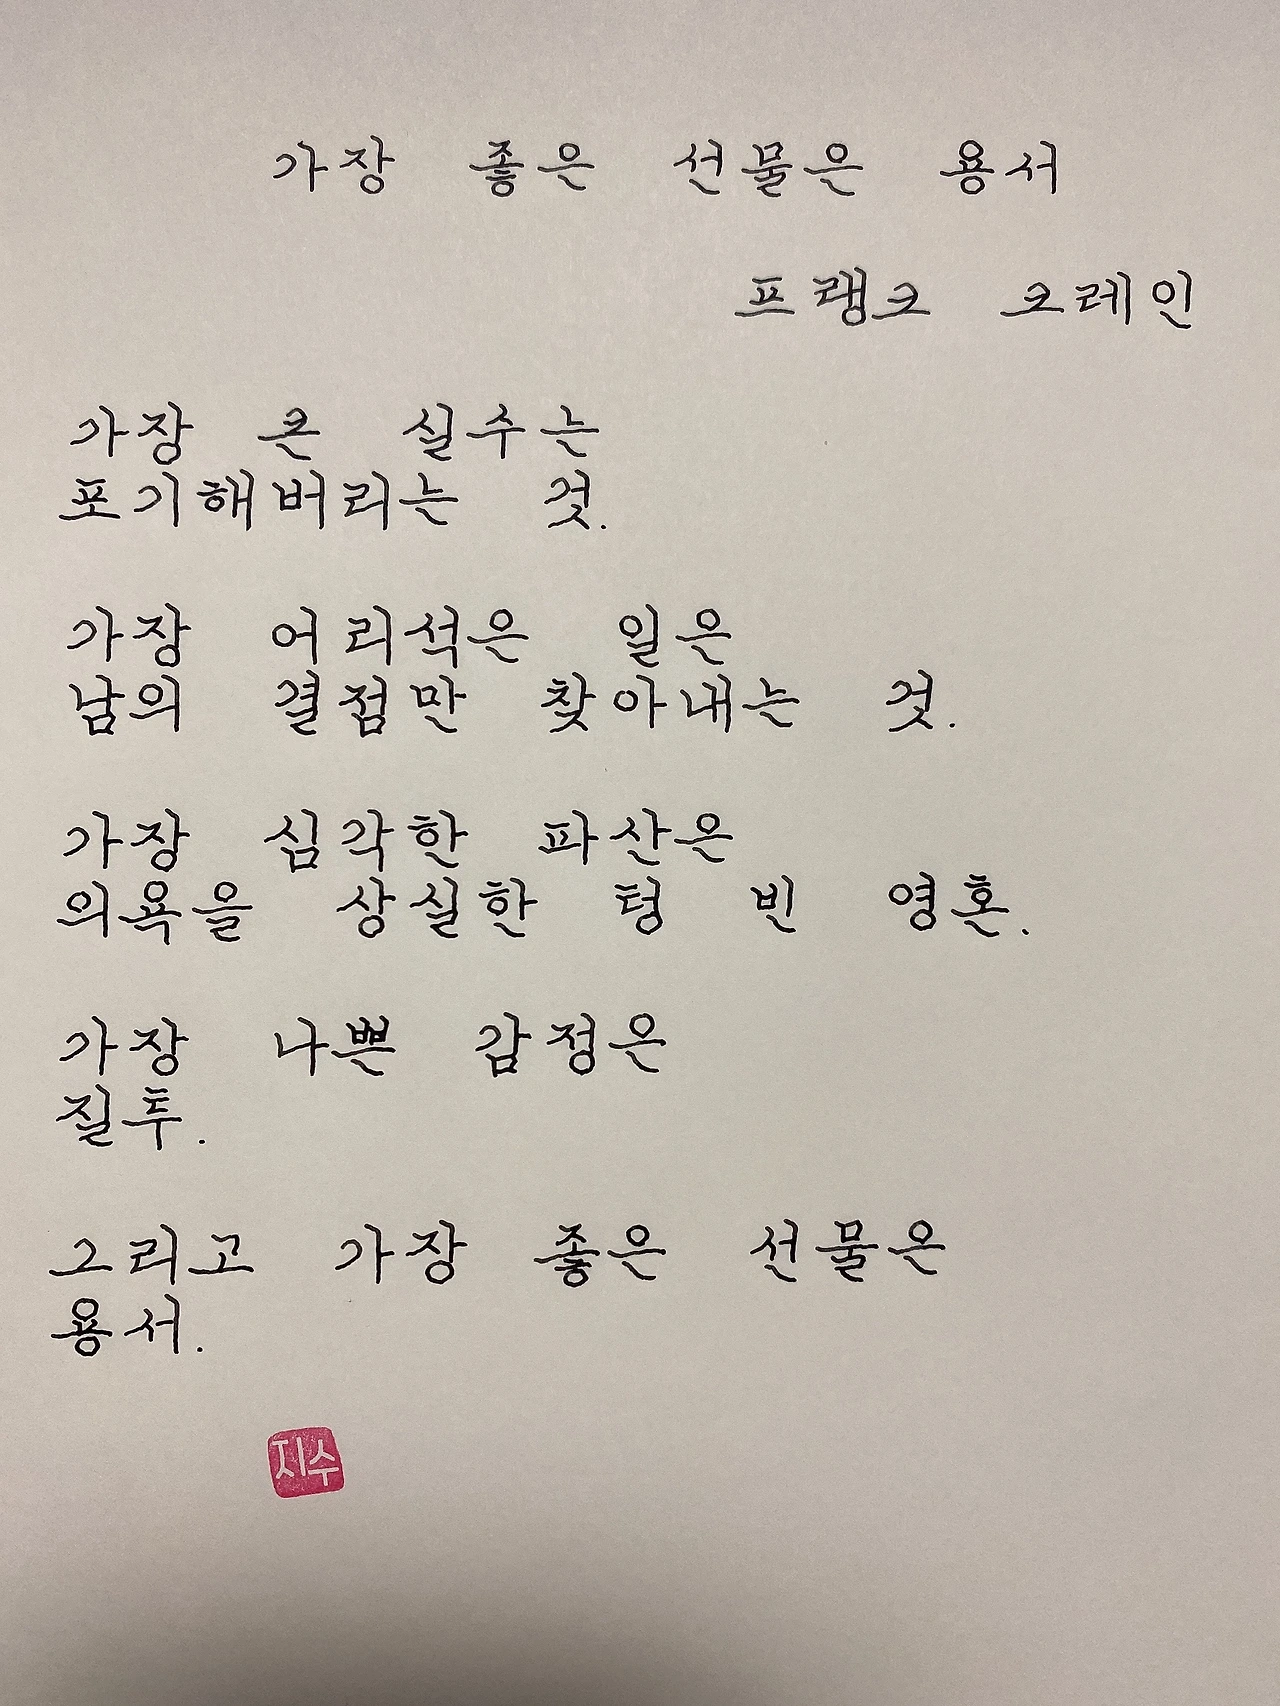 가장 좋은 선물은 용서
프랭크 크레인
가장 큰 실수는
포기해버리는 것.
가장 어리석은 일은
남의 결점만 찾아내는 것.
가장 심각한 파산은
의욕을 상실한 텅 빈 영혼.
가장 나쁜 감정은
질투.
그리고 가장 좋은 선물은
용서.
지수